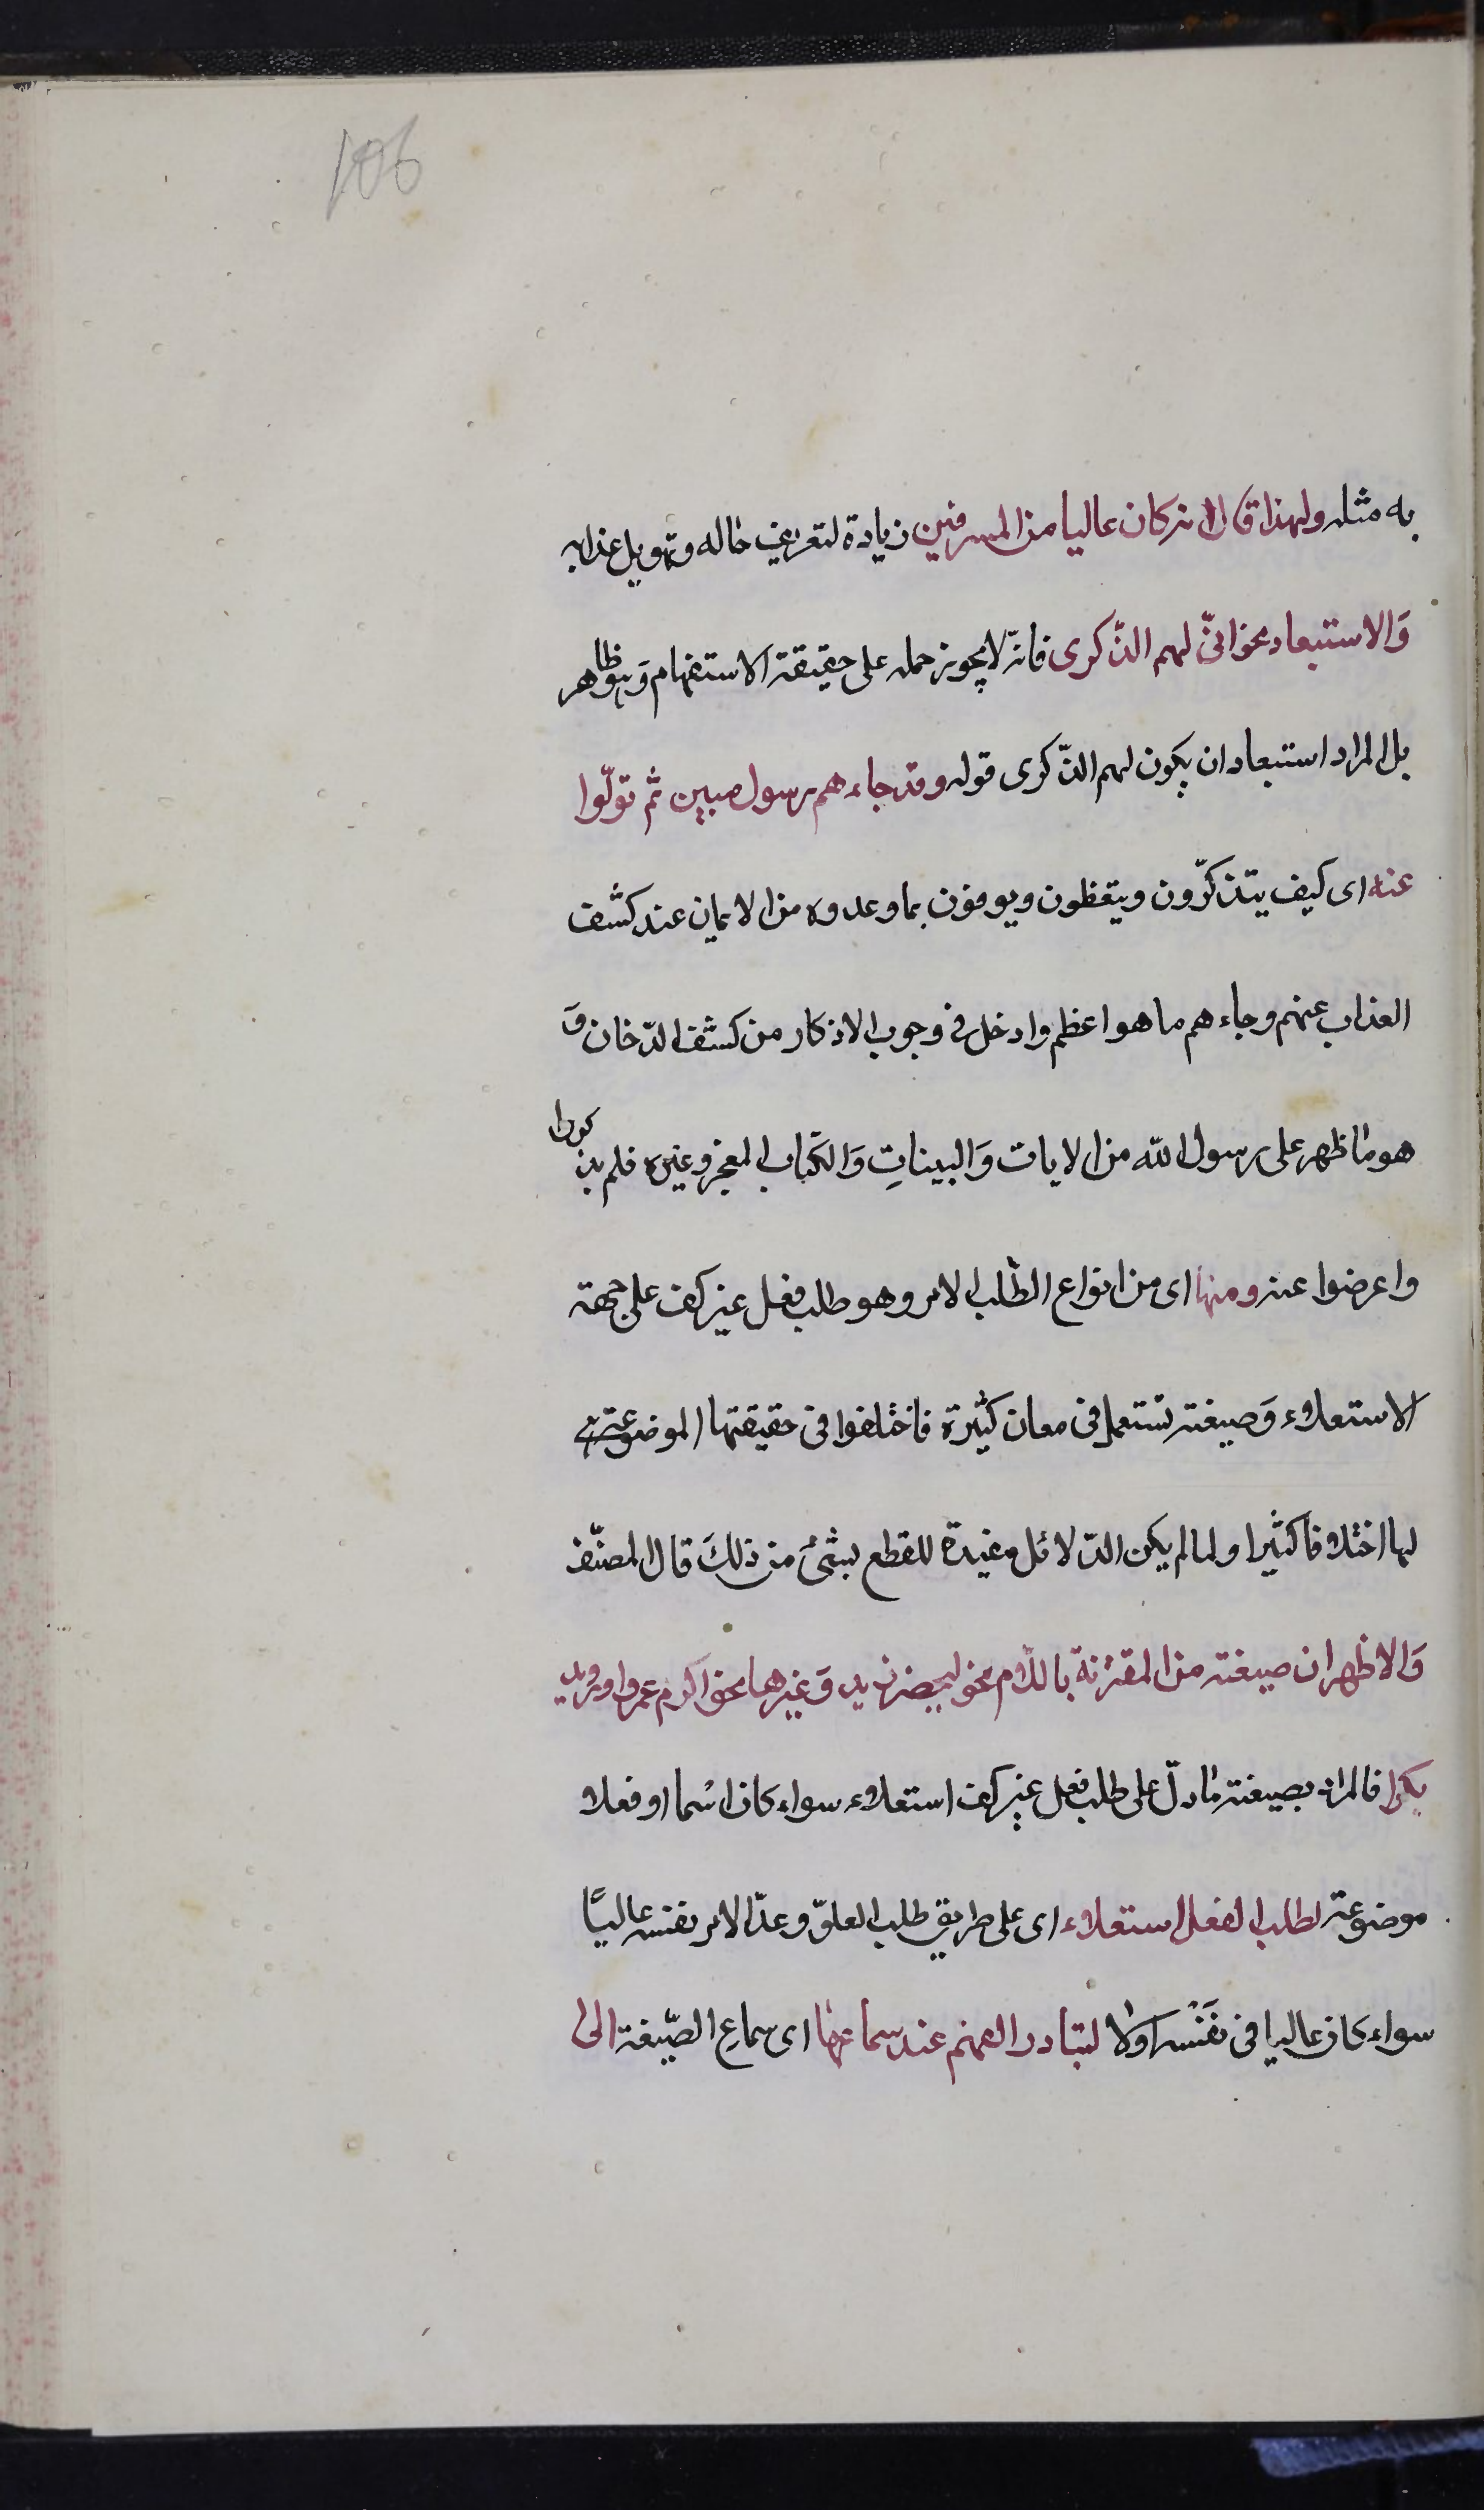 106
به مثله ولهذا قال انه كان عاليا من المسرفين زيادة لتعريف حاله وتهويل عذابه
وَالاستبعاد نحو انّى لهم الذّكرى فانّه لا يجوز حمله على حقيقة الاستفهام وَهو ظاهر
بل المراد استبعاد ان يكون لهم الذّكرى قوله وقد جاءهم رسول مبين ثم تولّوا
عنه اى كيف يتذكّرون ويتعظون ويوفون بما وعدوه من الايمان عند كشف
العذاب عنهم وجاءهم ما هو اعظم وادخل فى وجوب الاذكار من كشف الدّخان وَ
هو ما ظهر على رسول الله من الايات وَالبيناتِ وَالكتاب المعجز وغيره فلم يذكروا
واعرضوا عنه ومنها اى من انواع الطّلب الامر وهو طلب فعل غير كف على جهة
الاستعلاء وَصيغته تستعمل فى معان كثيرة فاختلفوا فى حقيقتها الموضوعة هى
لها اختلافا كثيرا ولما لم يكن الدّلائل مفيدة للقطع بشئ من ذلكَ قال المصنّف
وَالاظهر ان صيغته من المقترنة باللّام نحو ليحضر زيد وَغيرها نحو اكرم عمروا ورويد
بكرا فالمراد بصيغته ما دلّ على طلب فعل غير كف استعلاء سواء كان اسْما او فعلا
موضوعة لطلب الفعل استعلاء اى على طريق طلب العلوّ وعدّ الامر نفسه عاليًا
سواء كان عاليا فى نفَسْه او لا لتبادر الفهم عند سماعها اى سماعِ الصّيغة الى